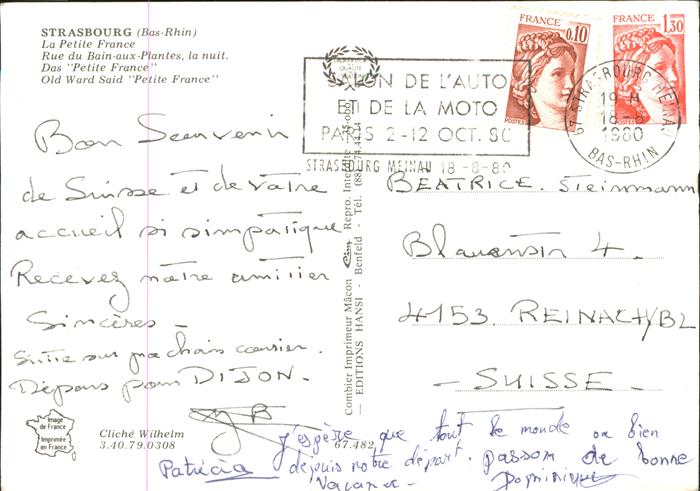 STRASBOURG (Bas-Rhin)
La Petite France
Rue du Bain-aux-Plantes, la nuit.
Das "Petite France"
Old Ward Said "Petite France"
FRANCE
0,10
FRANCE
1,30
SALON DE L'AUTO
ET DE LA MOTO
PARIS 2-12 OCT. 80
STRASBOURG MEINAU 18-8-80
67 STRASBOURG MEINAU
19 H
18-8
1980
BAS-RHIN
Bon Souvenir
de Suisse et de vôtre
accueil si simpatique
Recevez notre amitier
Sincères -
Suite sur prochain courier.
Dépars pour DIJON.
BEATRICE. Steinmann
4.
4153. REINACH/BL
- SUISSE -
Combier Imprimeur Mâcon Repro. Interdite
— EDITIONS HANSI - Benfeld - Tél. (88) 74.44.14
Image
de France
Imprimée
en France
Cliché Wilhelm
3.40.79.0308
67.482
j'espère que tout le monde va bien
Patricia depuis notre départ. passons de bonne
Vacance - Dominique